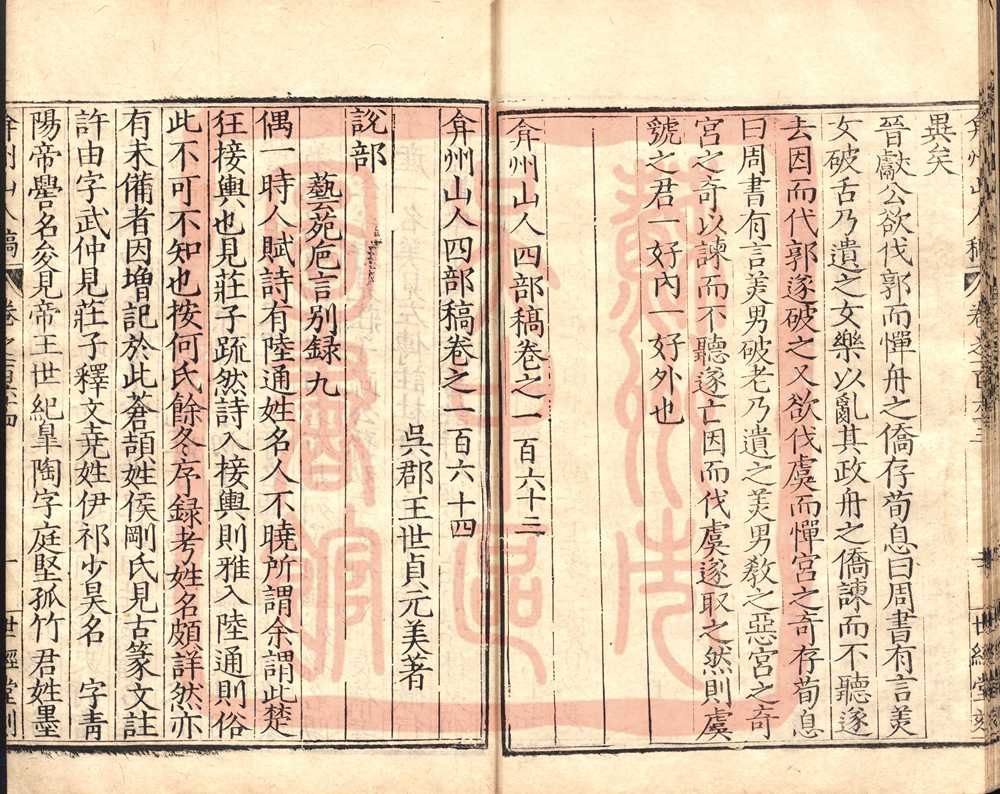 異矣
晉獻公欲伐郭而憚舟之僑存荀息曰周書有言美
女破舌乃遺之女樂以亂其政舟之僑諫而不聽遂
去因而伐郭遂破之又欲伐虞而憚宮之奇存荀息
曰周書有言美男破老乃遺之美男教之惡宮之奇
宮之奇以諫而不聽遂亡因而伐虞遂取之然則虞
虢之君一好內一好外也
弇州山人四部稿卷之一百六十三
弇州山人四部稿卷之一百六十四
吳郡王世貞元美著
說部
藝苑卮言別録九
偶一時人賦詩有陸通姓名人不曉所謂余謂此楚
狂接輿也見莊子疏然詩入接輿則雅入陸通則俗
此不可不知也按何氏餘冬序録考姓名頗詳然亦
有未備者因增記於此蒼頡姓侯剛氏見古篆文註
許由字武仲見莊子釋文堯姓伊祁少昊名 字青
陽帝嚳名夋見帝王世紀皐陶字庭堅孤竹君姓墨
世經堂刻